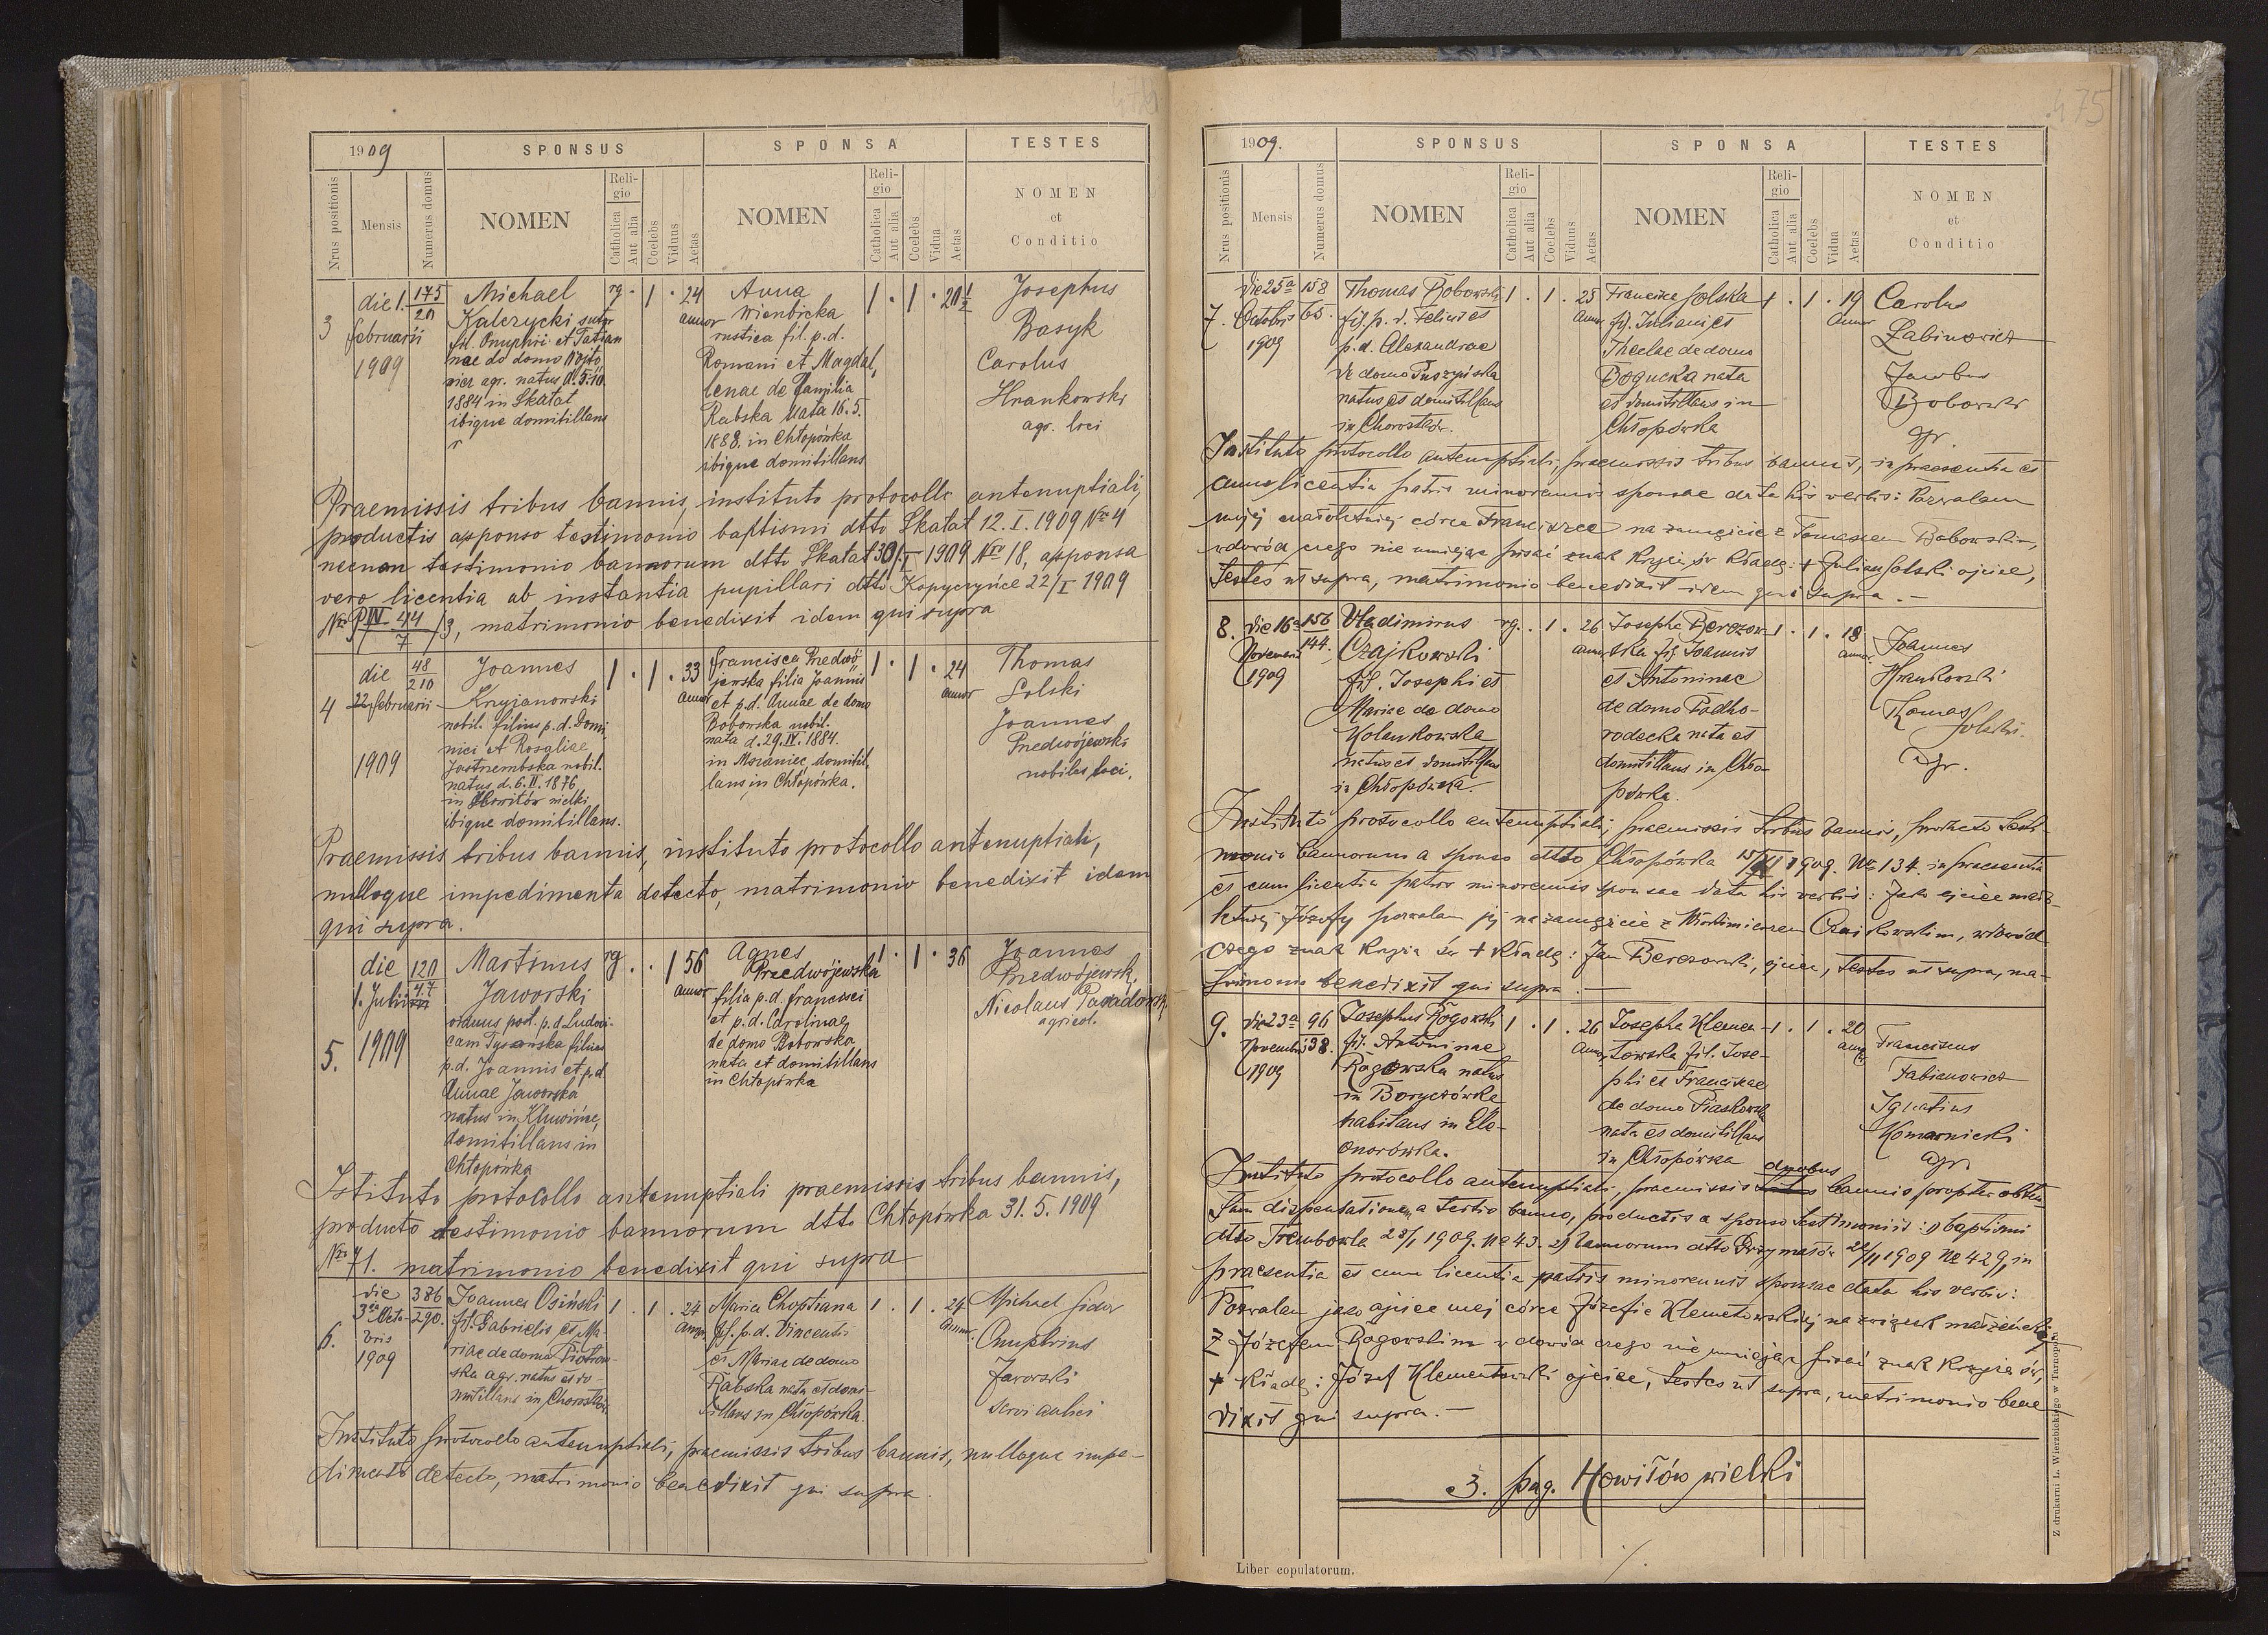 1909
SPONSUS
SPONSA
TESTES
Nrus positionis
Mensis
Numerus domus
NOMEN
Religio
Catholica
Aut alia
Coelebs
Viduus
Aetas
NOMEN
Religio
Catholica
Aut alia
Coelebs
Vidua
Aetas
NOMEN
et
Conditio
3
die 1.
februarii
1909
175
20
Michael
Kalczycki sutor
fil. Onuphri et Tatian
nae de domo Wojto
wicz agr. natus d. 5.10.
1884 in Skałat
ibique domitillans
rg · 1 · 24
annor
Anna
Wienbicka
rustica fil. p.d.
Romani et Magdal,
lenae de familia
Rabska nata 16.5.
1888. in Chłopówka
ibique domitillans
1 · 1 · 20 1/2
Josephus
Basyk
Carolus
Hrankowski
agr. loci
Praemissis tribus bannis, instituto protocollo antenuptiali,
productis asponso testimonio baptismi dtto Skałat 12. I. 1909 Nr 4
necnon testimonio bannorum dtto Skałat 30/I 1909 Nr 18, asponsa
vero licentia ab instantia pupillari dtto Kopyczyńce 22/I 1909
Nr P IV 44/7 /3, matrimonio benedixit idem qui supra
4
die
22 februarii
1909
48
210
Joannes
Kryjanowski
nobil. filius p.d. Domi,
nici et Rosaliae
Jastrzembska nobil.
natus d. 6. II. 1876
in Howiłów wielki
ibique domitillans.
1 · 1 · 33
annor
Francisca Przedwó
jewska filia Joannis
et p.d. Annae de domo
Bobowska nobil.
nata d. 29. IV. 1884.
in domitil,
lans in Chłopówka.
1 · 1 · 24
annor
Thomas
Solski
Joannes
Przedwójewski
nobiles loci.
Praemissis tribus bannis, instituto protocollo antenuptiali,
nulloque impedimenta detecto, matrimonio benedixit idem
qui supra.
5.
die
1. Julii
1909
120
47
Martinus
Jaworski
viduus post. p.d. Ludovi-
cam Tysańska filius
p.d. Joannis et p.d
Annae Jaworska
natus in Kluwińce,
domitillans in
Chłopówka
rg · · 1 56
annor
Agnes
Przedwójewska
filia p.d. francisci
et p.d. Carolinae
de domo Bobowska
nata et domitillans
in Chłopówka
1 · 1 · 36
Joannes
Przedwójewski,
Nicolaus Paradowski
agricol.
Istituto protocollo antenuptiali praemissis tribus bannis,
producto testimonio bannorum dtto Chłopówka 31. 5. 1909
Nr 71. matrimonio benedixit qui supra
6.
die
3a Octo-
bris
1909
386
290.
Joannes Osiński
fil. Gabrielis et Ma-
riae de domo Piotrow-
ska agr. natus et do-
mitillans in Chorostków.
1 · 1 · 24
annor.
Maria Choptiana
fil. p.d. Vincentii
et Mariae de domo
Rabska nata et domi-
tillans in Chłopówka.
1 · 1 · 24
annor.
Michael Sidor
Onuphrius
Jaworski
servi aulici
Instituto protocollo antenuptiali, praemissis tribus bannis, nulloque impe-
dimento detecto, matrimonio benedixit qui supra.
475
1909.
SPONSUS
SPONSA
TESTES
Nrus positionis
Mensis
Numerus domus
NOMEN
Religio
Catholica
Aut alia
Coelebs
Viduus
Aetas
NOMEN
Religio
Catholica
Aut alia
Coelebs
Vidua
Aetas
NOMEN
et
Conditio
7.
die 25a
Octobris
1909
158
65.
Thomas Bobowski
fil. p. d. Felicis et
p.d. Alexandrae
de domo Puszyńska
natus et domitillans
in Chorostków.
1 · 1 · 25
annor
Francisca Solska
fil. Juliani et
Theclae de domo
Bogucka nata
et domitillans in
Chłopówka
1 · 1 · 19
annor
Carolus
Łabinowicz
Jacobus
Bobowski
agr.
Instituto protocollo antenuptiali, praemissis tribus bannis, in praesentia et
cum licentia patris minorennis sponsae data his verbis: Pozwalam
mojej małoletniej córce Franciszce na zamęźcie z Tomaszem Bobowskim,
w dowód czego nie umiejąc pisać znak krzyża św. kładę: + Julian Solski ojciec,
testes ut supra, matrimonio benedixit idem qui supra. —
8.
die 16a
Novembris
1909
156
144.
Vladimirus
Czajkowski
fil. Josephi et
Mariae de domo
Kolankowska
natus et domitillans
in Chłopówka.
rg. · 1 · 26
annor
Josepha Berezow-
ska fil. Joannis
et Antoninae
de domo Podho-
rodecka nata et
domitillans in Chło-
pówka.
1 · 1 · 18
annor.
Joannes
Hrankowski
Thomas
Solski.
agr.
Instituto protocollo antenuptiali, praemissis tribus bannis, producto testi-
monio bannorum a sponso dtto Chłopówka 15/XI 1909. Nr 134. in praesentia
et cum licentia patris minorennis sponsae data his verbis: Jako ojciec mało-
letniej Józefy pozwalam jej na zamęźcie z Włodzimierzem Czajkowskim, w dowód
czego znak krzyża św + kładę: Jan Berezowski, ojciec, testes ut supra, ma-
trimonio benedixit qui supra. —
9.
die 23a
Novembris
1909
96
38.
Josephus Rogowski
fil. Antoninae
Rogowska natus
in Boryczówka
habitans in Ele-
onorówka.
1 · 1 · 26
annor.
Josepha Klemen-
towska fil. Jose-
phi et Franciscae
de domo Piaskowska
nata et domitillans
in Chłopówka
1 · 1 · 20
annor
Franciscus
Fabianowicz
Ignatius
Komarnicki
agr.
duobus
Instituto protocollo antenuptiali, praemissis tribus bannis propter obten-
tam dispensationem a tertio banno, productis a sponso testimoniis: 1) baptismi
dtto Trembowla 28/1 1909. Nr 43. 2) bannorum dtto Grzymałów 22/11 1909 Nr 429, in
praesentia et cum licentia patris minorennis sponsae data his verbis:
Pozwalam jako ojciec mej córce Józefie Klemetowskiej na związek małżeński
z Józefem Rogowskim w dowód czego nie umiejąc pisać znak krzyża św,
+ kładę: Józef Klementowski ojciec, testes ut supra, matrimonio bene
dixit qui supra. —
3. pag. Howiłów wielki
Liber copulatorum.
Z drukarni L. Wierzbickiego w Tarnopolu